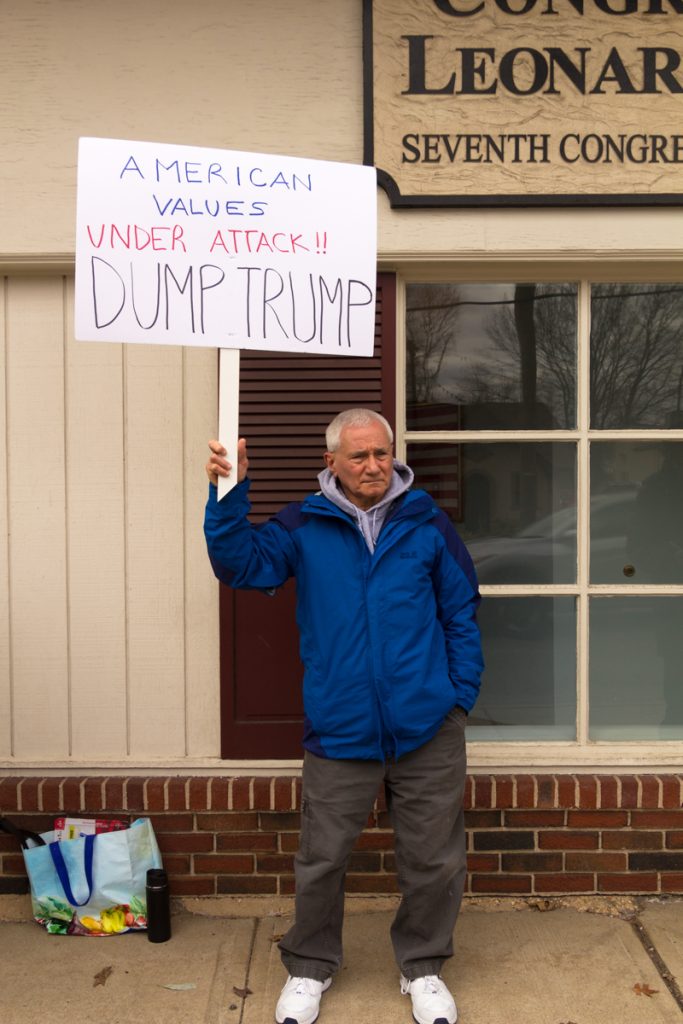 CONGR
LEONAR
SEVENTH CONGRE
AMERICAN
VALUES
UNDER ATTACK!!
DUMP TRUMP